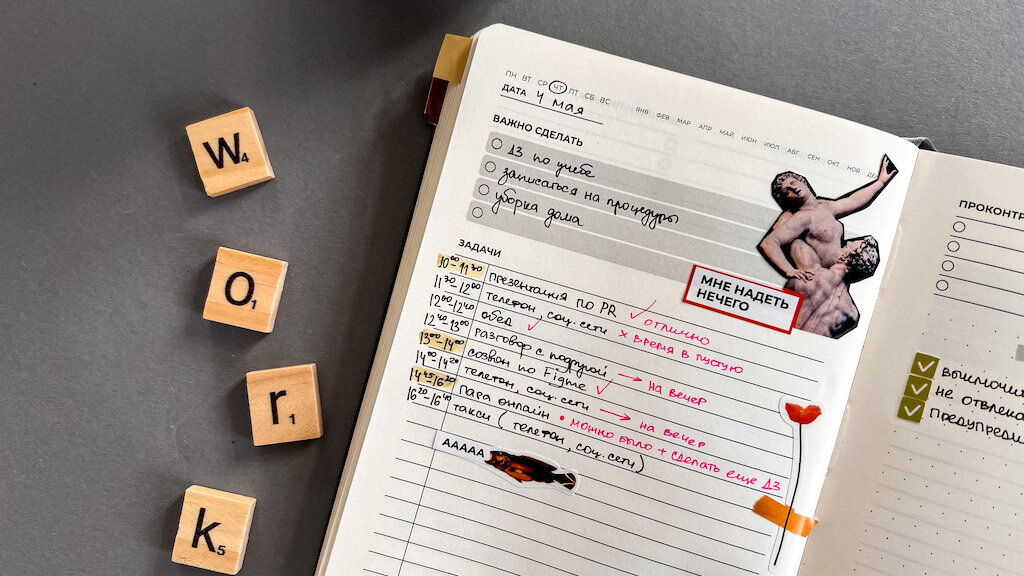 W4
o1
r1
k5
ПН ВТ СР ЧТ ПТ СБ ВС ЯНВ ФЕВ МАР АПР МАЙ ИЮН ИЮЛ АВГ СЕН ОКТ НОЯ
ДАТА 4 мая
ВАЖНО СДЕЛАТЬ
ДЗ по учебе
записаться на процедуры
уборка дома
ЗАДАЧИ
МНЕ НАДЕТЬ
НЕЧЕГО
10:00-11:30 презентация по PR ✓ отлично
11:30-12:00 телефон, соц. сети x время в пустую
12:00-12:40 обед ✓
12:40-13:00 разговор с подругой → на вечер
13:00-14:00 созвон по Figme ✓
14:00-14:20 телефон, соц. сети → на вечер
14:45-16:20 пара онлайн • можно было + сделать еще ДЗ
16:20-16:40 такси (телефон, соц. сети)
ААААА
ПРОКОНТР
✓ выключи
✓ не отвлека
✓ предупреди